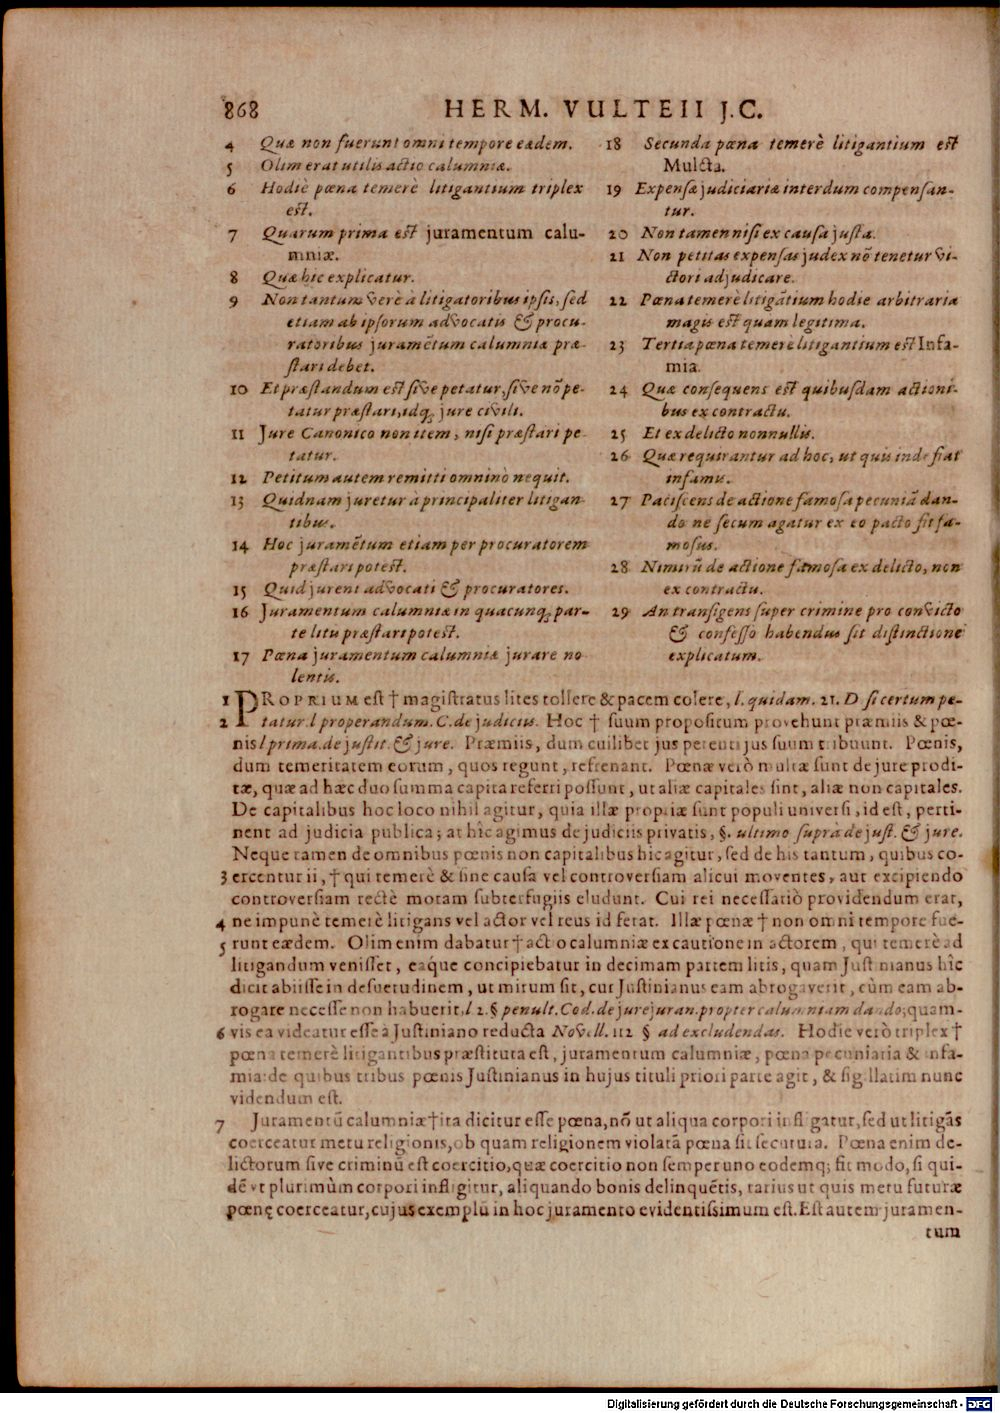 868 HERM. VULTEII J.C.
4 Quæ non fuerunt omni tempore eædem.
5 Olim erat utilis actio calumniæ.
6 Hodiè pœna temerè litigantium triplex
est.
7 Quarum prima est juramentum calu-
mniæ.
8 Quæ hic explicatur.
9 Non tantum verè à litigatoribus ipsis, sed
etiam ab ipsorum advocatis & procu-
ratoribus juramẽtum calumniæ præ-
stari debet.
10 Et præstandum est sive petatur, sive nõ pe-
tatur præstari, idq; jure civili.
11 Jure Canonico non item, nisi præstari pe-
tatur.
12 Petitum autem remitti omninò nequit.
13 Quidnam juretur à principaliter litigan-
tibus.
14 Hoc juramẽtum etiam per procuratorem
præstari potest.
15 Quid jurent advocati & procuratores.
16 Juramentum calumniæ in quacunq; par-
te litis præstari potest.
17 Pœna juramentum calumniæ jurare no
lentis.
18 Secunda pœna temerè litigantium est
Mulcta.
19 Expensæ judiciariæ interdum compensan-
tur.
20 Non tamen nisi ex causa justa.
21 Non petitas expensas judex nõ tenetur vi-
ctori adjudicare.
22 Pœna temerè litigãtium hodie arbitraria
magis est quam legitima.
23 Tertia pœna temerè litigantium est Infa-
mia.
24 Quæ consequens est quibusdam actioni-
bus ex contractu.
25 Et ex delicto nonnullis.
26 Quæ requirantur ad hoc, ut quis inde fiat
infamis.
27 Paciscens de actione famosa pecuniã dan-
do ne secum agatur ex eo pacto fit fa-
mosus.
28 Nimirũ de actione famosa ex delicto, non
ex contractu.
29 An transigens super crimine pro convicto
& confesso habendus sit distinctione
explicatum.
1 PROPRIUM est † magistratus lites tollere & pacem colere, l. quidam. 21. D si certum pe-
2 tatur. l properandum. C. de judiciis. Hoc † suum propositum provehunt præmiis & pœ-
nis l prima. de justit. & jure. Præmiis, dum cuilibet jus petenti jus suum tribuunt. Pœnis,
dum temeritatem eorum, quos regunt, refrenant. Pœnæ verò multæ sunt de jure prodi-
tæ, quæ ad hæc duo summa capita referri possunt, ut aliæ capitales sint, aliæ non capitales.
De capitalibus hoc loco nihil agitur, quia illæ propriæ sunt populi universi, id est, perti-
nent ad judicia publica; at hîc agimus de judiciis privatis, §. ultimo suprà de just. & jure.
Neque tamen de omnibus pœnis non capitalibus hic agitur, sed de his tantum, quibus co-
3 ercentur ii, † qui temerè & sine causa vel controversiam alicui moventes, aut excipiendo
controversiam rectè motam subterfugiis eludunt. Cui rei necessariò providendum erat,
4 ne impunè temerè litigans vel actor vel reus id ferat. Illæ pœnæ † non omni tempore fue-
5 runt eædem. Olim enim dabatur † act o calumniæ ex cautione in actorem, qui temerè ad
litigandum venisset, eaque concipiebatur in decimam partem litis, quam Just nianus hîc
dicit abiisse in desuetudinem, ut mirum sit, cur Justinianus eam abrogaverit, cùm eam ab-
rogare necesse non habuerit, l 2. § penult. Cod. de jurejuran. propter calumniam dando; quam-
6 vis ea videatur esse à Justiniano reducta Novell. 112 § ad excludendas. Hodie verò triplex †
pœna temerè litigantibus præstituta est, juramentum calumniæ, pœna pecuniaria & infa-
mia: de quibus tribus pœnis Justinianus in hujus tituli priori parte agit, & sigillatim nunc
videndum est.
7 Juramentũ calumniæ † ita dicitur esse pœna, nõ ut aliqua corpori infligatur, sed ut litigãs
coerceatur metu religionis, ob quam religionem violatã pœna sit secutura. Pœna enim de-
lictorum sive criminũ est coercitio, quæ coercitio non semper uno eodemq; fit modo, si qui-
dẽ vt plurimùm corpori infligitur, aliquando bonis delinquẽtis, rarius ut quis metu futuræ
pœnę coerceatur, cujus exemplũ in hoc juramento evidentissimum est. Est autem juramen-
tum
Digitalisierung gefördert durch die Deutsche Forschungsgemeinschaft - DFG